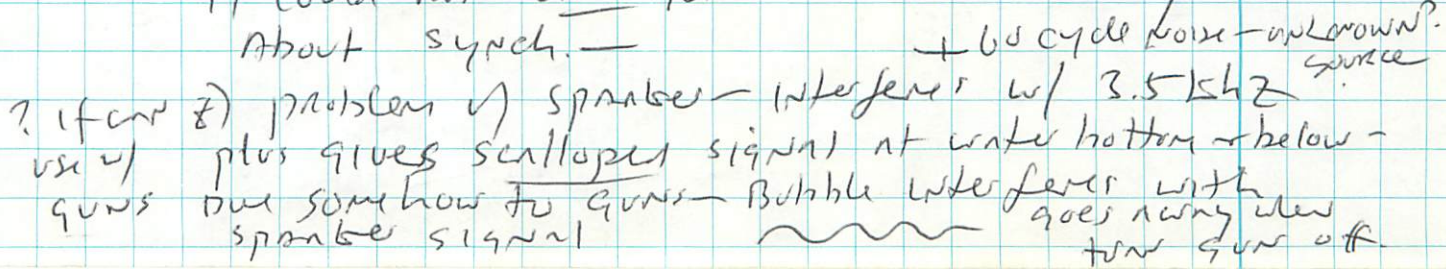 About synch. — + 60 cycle Noise - unknown?
source
? if can 2) problem w/ sparker - interferes w/ 3.5 kHz
use w/ plus gives scalloped signal at water bottom + below -
guns Due somehow to guns - Bubble interferes with
sparker signal goes away when
turn gun off.